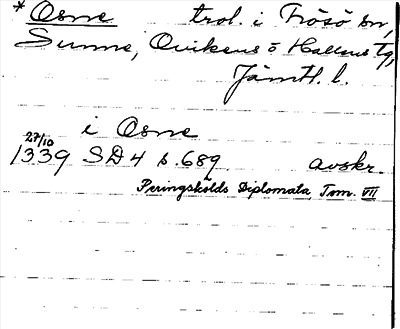 * Osne trol. i Frösö sn,
Sunne, Ovikens o Hallens tg,
Jämtl. l.
i Osne
27/10
1339 SD 4 s. 689 avskr.
Peringskölds Diplomata, Tom. VII